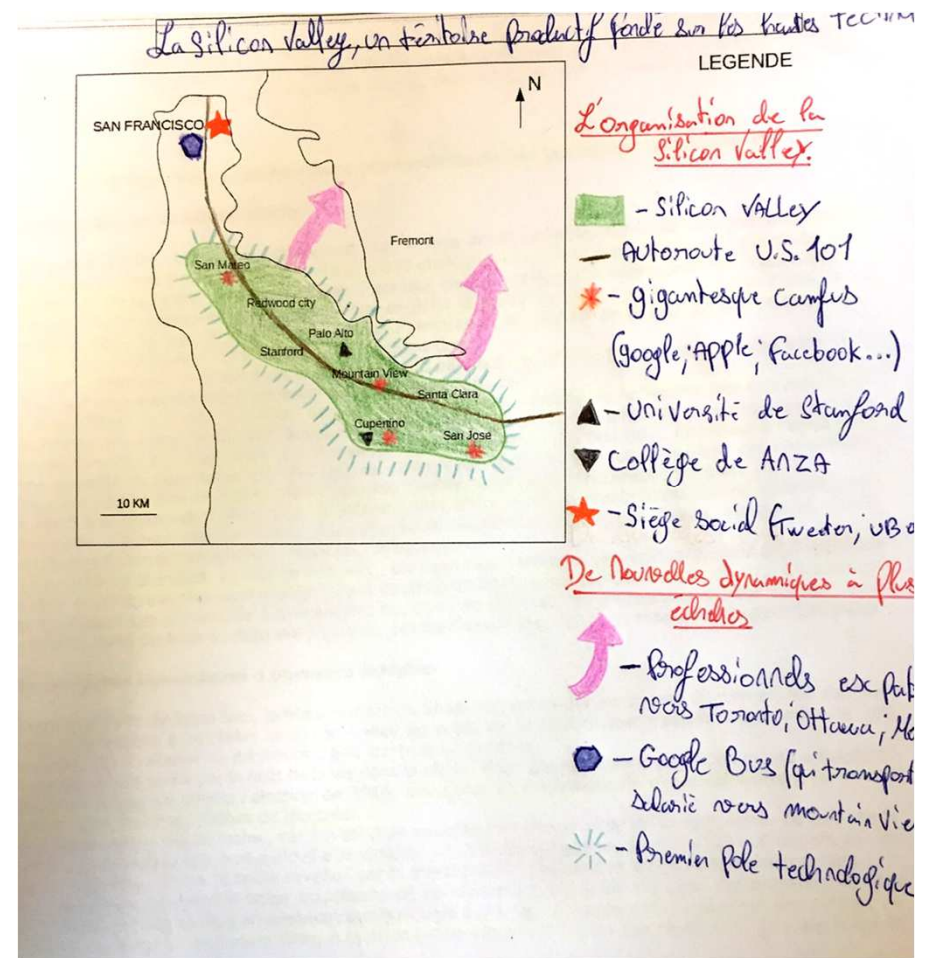 La silicon Valley, un téritoire productif fondé sur les hautes
N
SAN FRANCISCO
Fremont
San Mateo
Redwood city
Palo Alto
Stanford
Mountain View
Santa Clara
Cupertino
San José
10 KM
LEGENDE
L'organisation de la
Silicon Valley.
- Silicon VALLEY
- Autoroute U.S. 101
- gigantesque campus
(google; Apple; facebook...)
- Université de Stanford
Collège de ANZA
- Siège social
De Nouvelles dynamiques à plus
échelles
- Professionnels
vers Toronto; Ottawa;
- Google Bus (qui transport
salarié vers mountain Vie
- Premier pole technologique